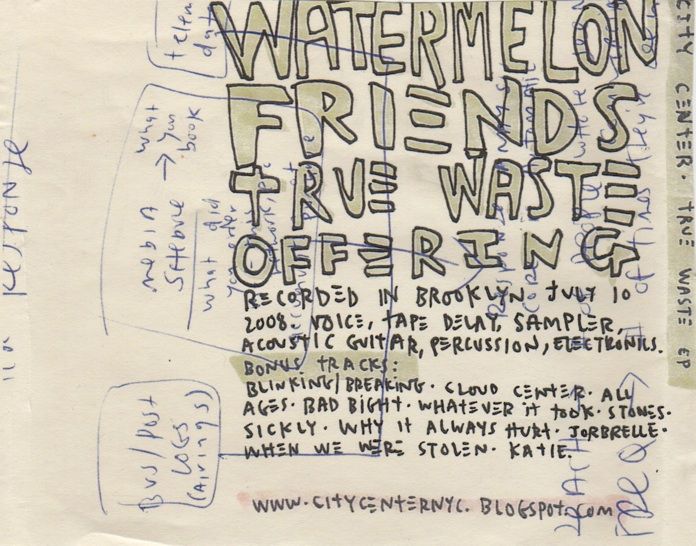 WATERMELON
FRIENDS
TRUE WASTE
OFFERING
RECORDED IN BROOKLYN JULY 10
2008. VOICE, TAPE DELAY, SAMPLER,
ACOUSTIC GUITAR, PERCUSSION, ELECTRONICS.
BONUS TRACKS:
BLINKING/BREAKING. CLOUD CENTER. ALL
AGES. BAD BIGHT. WHATEVER IT TOOK. STONES.
SICKLY. WHY IT ALWAYS HURT. JORBRELLE.
WHEN WE WERE STOLEN. KATIE.
WWW.CITYCENTERNYC.BLOGSPOT.COM
CITY CENTER. TRUE WASTE EP
what
you
book
media
what did
BUS/POST
LOGS
(AIRINGS)
Response